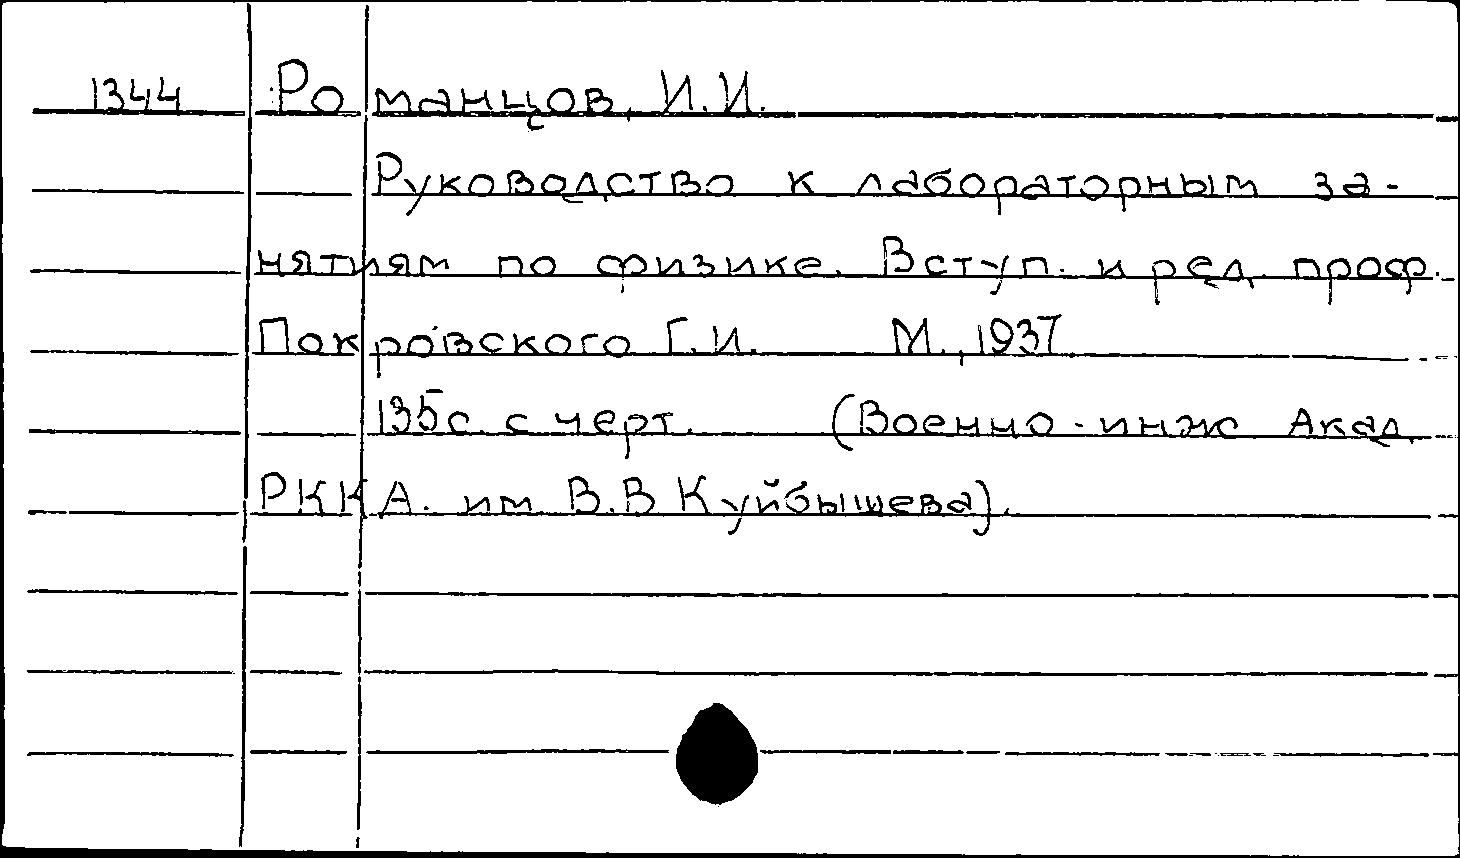 1344 Романцов, И.И.
Руководство к лабораторным за-
нятиям по физике. Вступ. и ред. проф.
Покровского Г.И. М., 1937
135с. с черт. (Военно-инж Акад.
РККА. им. В.В Куйбышева).